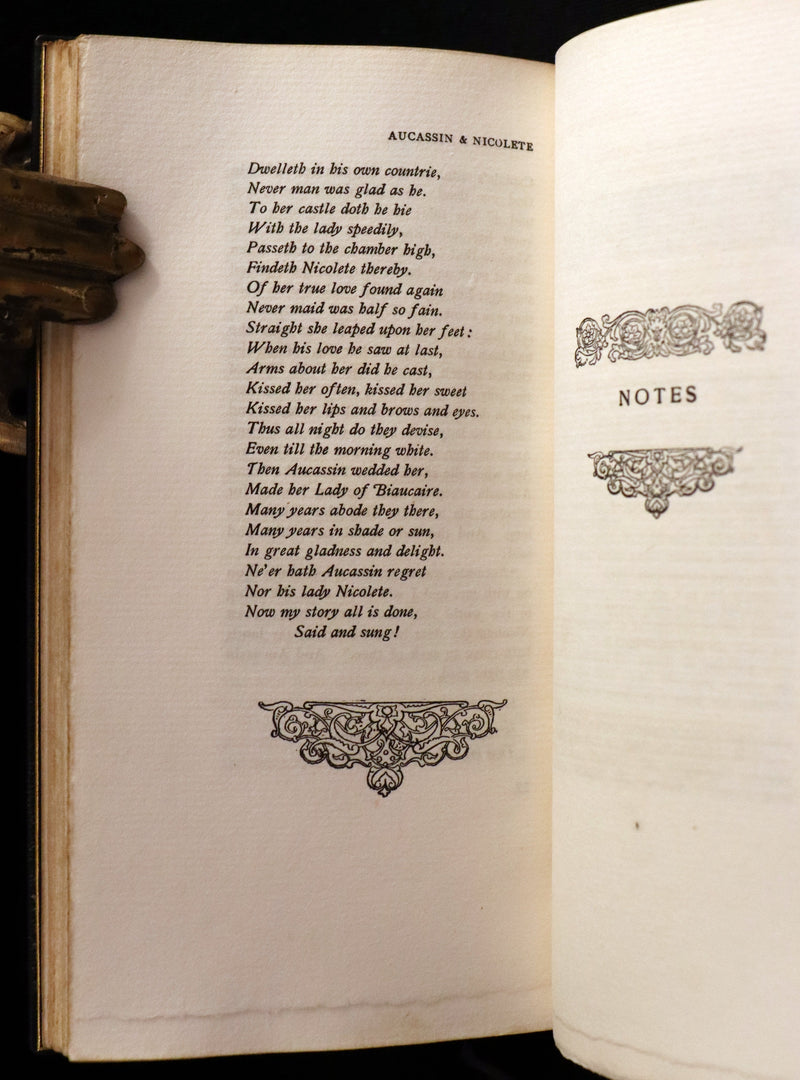 AUCASSIN & NICOLETE
Dwelleth in his own countrie,
Never man was glad as he.
To her castle doth he hie
With the lady speedily,
Passeth to the chamber high,
Findeth Nicolete thereby.
Of her true love found again
Never maid was half so fain.
Straight she leaped upon her feet:
When his love he saw at last,
Arms about her did he cast,
Kissed her often, kissed her sweet
Kissed her lips and brows and eyes.
Thus all night do they devise,
Even till the morning white.
Then Aucassin wedded her,
Made her Lady of Biaucaire.
Many years abode they there,
Many years in shade or sun,
In great gladness and delight.
Ne'er hath Aucassin regret
Nor his lady Nicolete.
Now my story all is done,
Said and sung!
NOTES